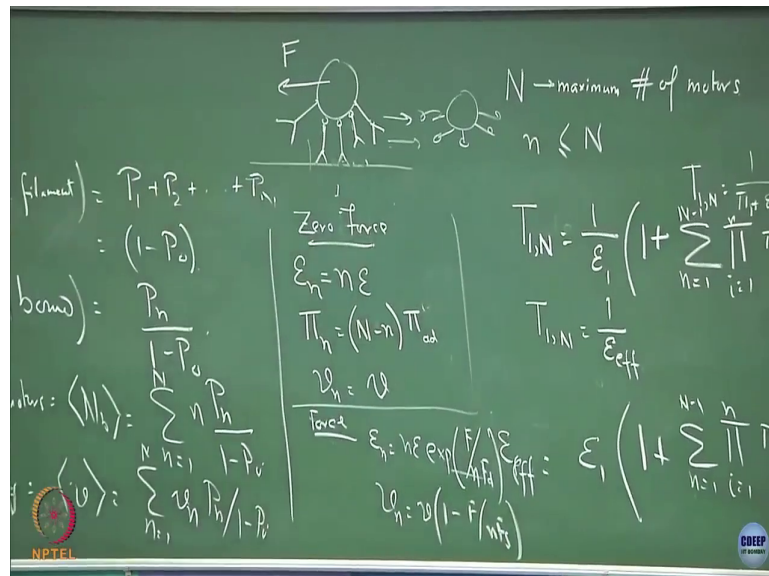 F
N → maximum # of motors
n ⩽ N
filament) = P₁ + P₂ + . . + P
= (1 - P₀)
bound) = Pₙ / 1 - P₀
motors: ⟨N_b⟩ = ∑_{n=1}^{N} n Pₙ / 1 - P₀
: ⟨v⟩ = ∑_{n=1}^{N} vₙ Pₙ / 1 - P₀
Zero Force
εₙ = nε
Πₙ = (N-n) Π_ad
vₙ = v
Force
εₙ = nε exp(F/nF_d)
vₙ = v(1 - F/nF_s)
T₁,N = 1 / Π₁ + ε
T₁,N = 1/ε₁ (1 + ∑_{n=1}^{N-1} ∏_{i=1}^{n}
T₁,N = 1/ε_eff
ε_eff = ε₁ (1 + ∑_{n=1}^{N-1} ∏_{i=1}^{n}
NPTEL
CDEEP
IIT BOMBAY